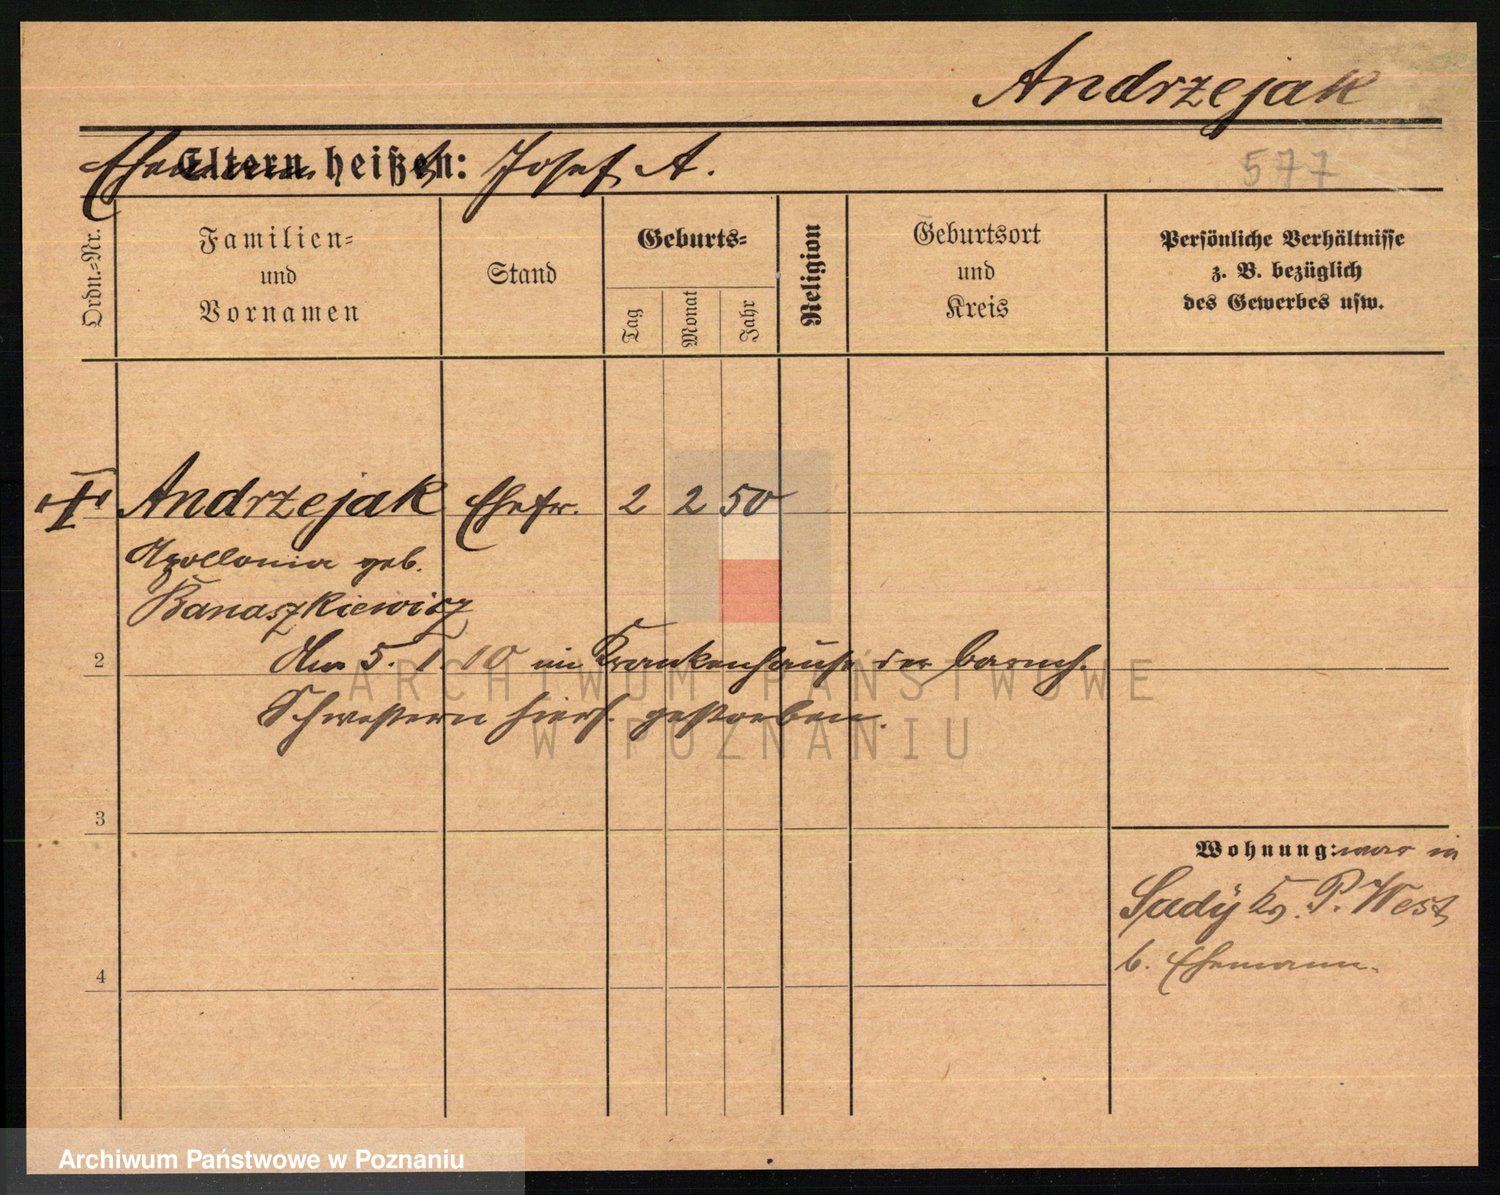 Andrzejak
Eltern heißen: Josef A.
577
Ordn.-Nr.
Familien-
und
Vornamen
Stand
Geburts-
Tag
Monat
Jahr
Religion
Geburtsort
und
Kreis
Persönliche Verhältnisse
z. B. bezüglich
des Gewerbes usw.
Andrzejak Ehefr. 2 2 50
Apollonia geb.
Banaszkiewicz
2
Am 5. 1. 10 im Krankenhause der barmh.
Schwestern hiers. gestorben.
ARCHIWUM PAŃSTWOWE
W POZNANIU
3
Wohnung: war in
Sady Kr. P. West
b. Ehemann.
4
Archiwum Państwowe w Poznaniu